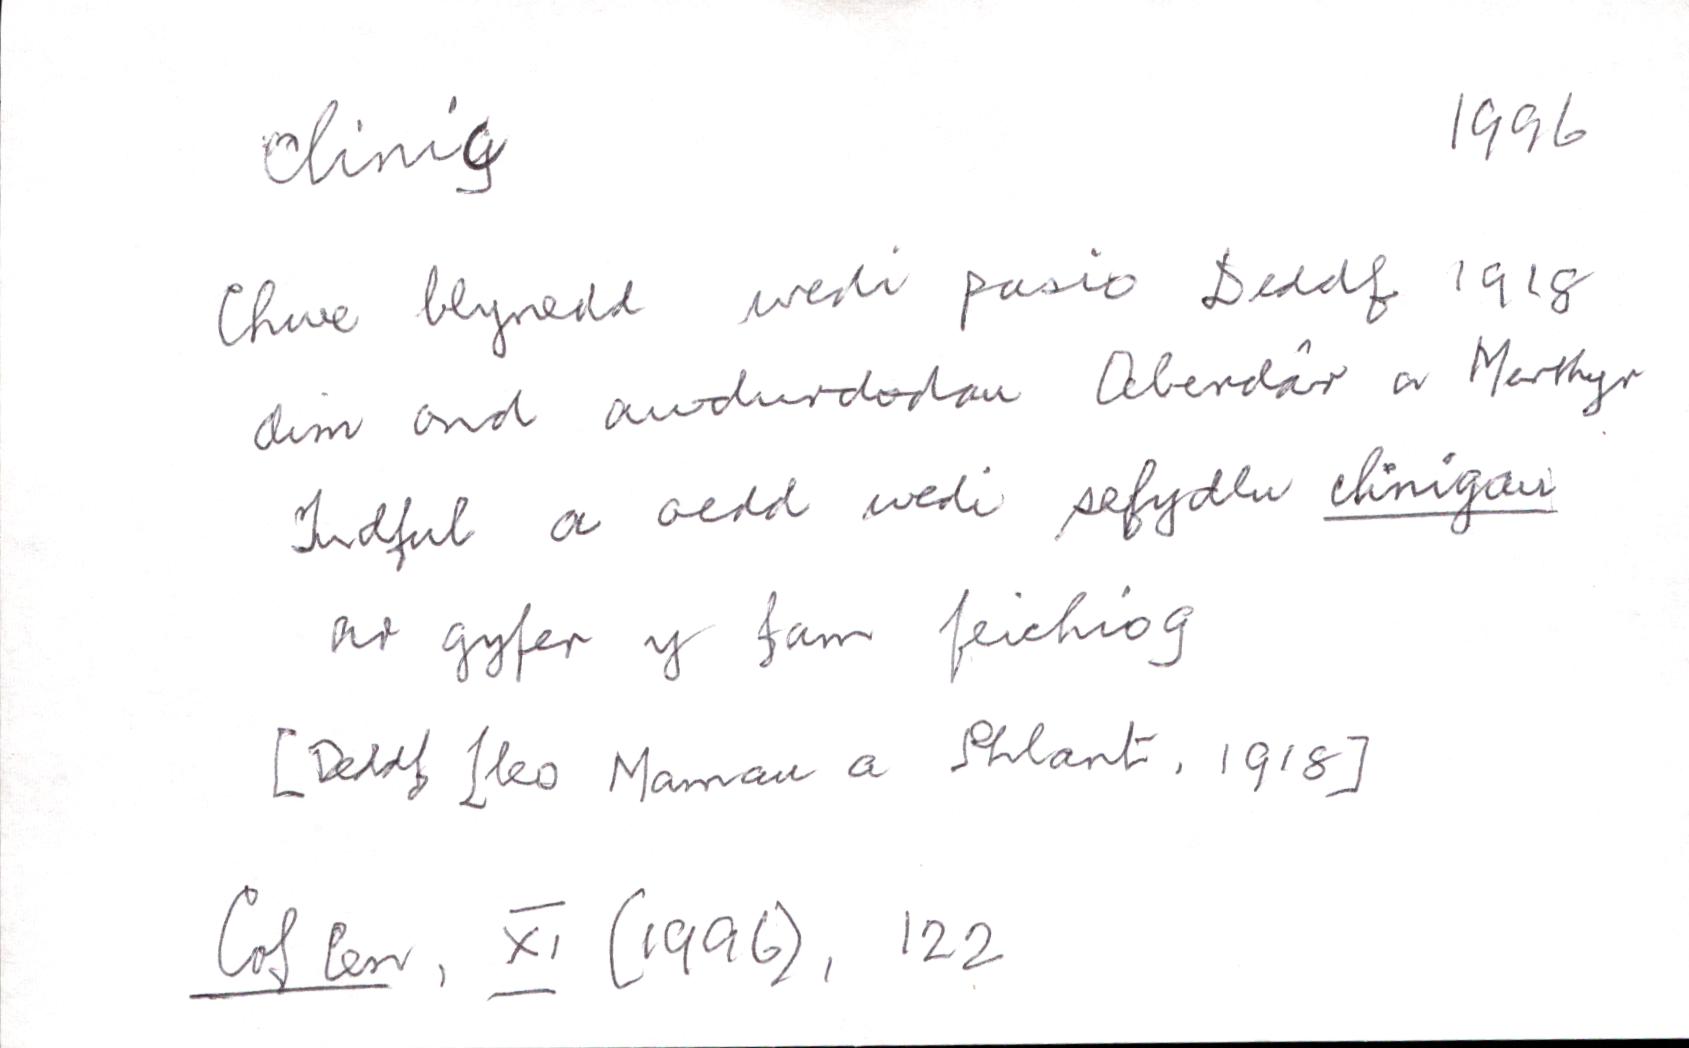 clinig 1996
Chwe blynedd wedi pasio Deddf 1918
dim ond awdurdodau Aberdâr a Merthyr
Tudful a oedd wedi sefydlu clinigau
ar gyfer y fam feichiog
[Deddf Lles Mamau a Phlant, 1918]
Cof Cen, XI (1996), 122